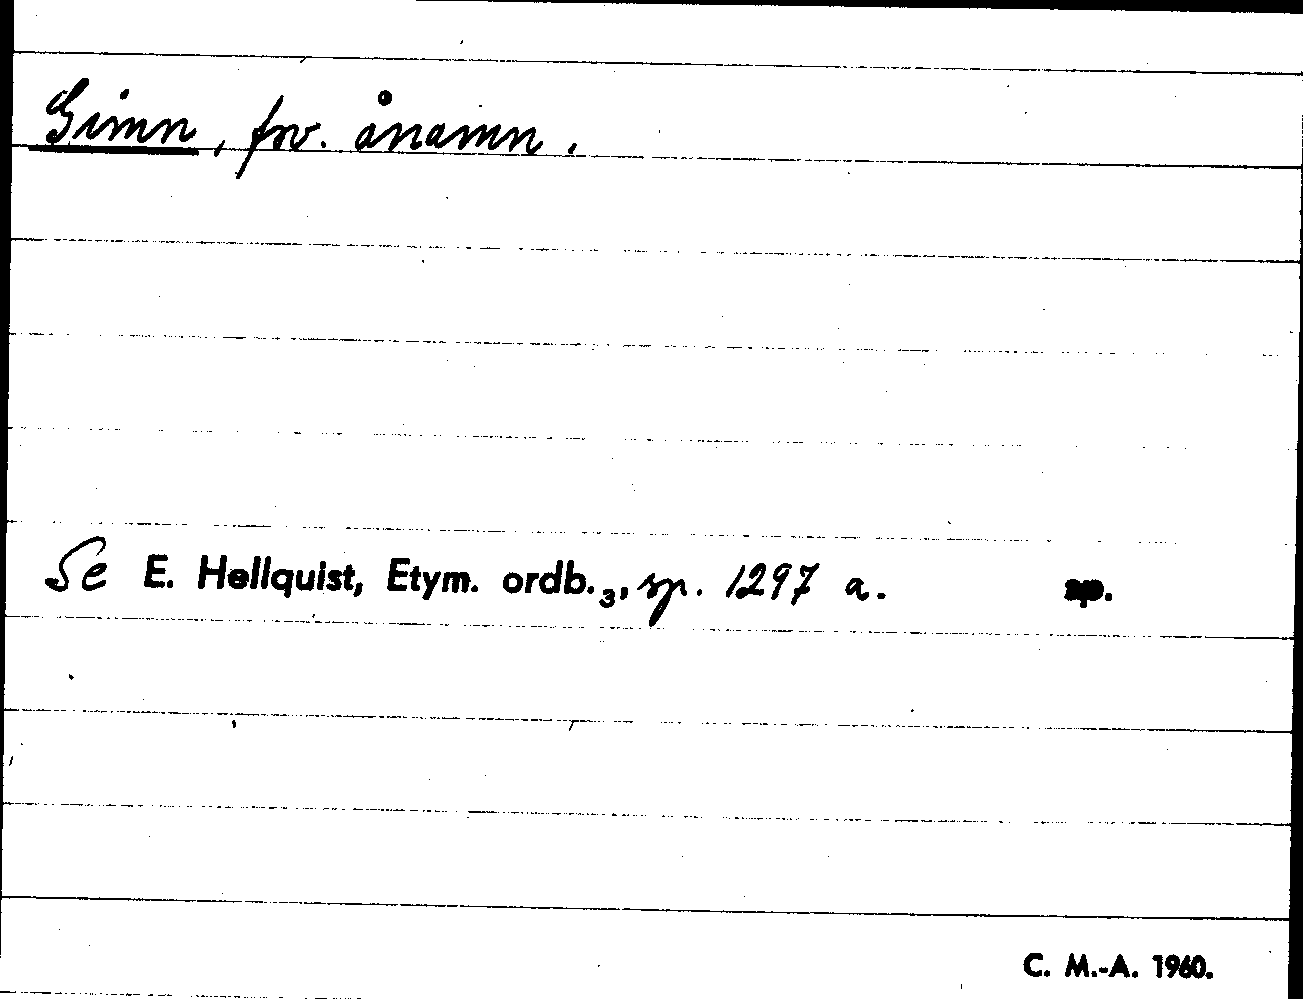 Gimn, fnv. ånamn.
Se E. Hellquist, Etym. ordb.₃, sp. 1297 a. sp.
C. M.-A. 1960.